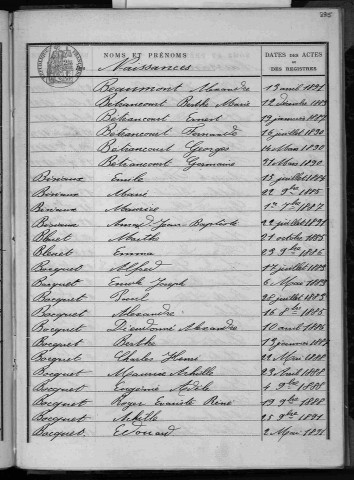 395
NOMS ET PRÉNOMS
DATES DES ACTES
OU
DES REGISTRES
Naissances
Beaumont Alexandre 13 avril 1891
Betrancourt Berthe Marie 12 décembre 1883
Betrancourt Ernest 19 janvier 1887
Betrancourt Fernande 16 juillet 1890
Betrancourt Georges 14 Mai 1890
Betrancourt Germaine 31 Mai 1890
Bisiaux Emile 15 juillet 1884
Bisiaux Marie 22 9bre 1885
Bisiaux Maurice 1er 7bre 1887
Bisiaux Jean-Baptiste 22 juillet 1891
Martha 21 octobre 1885
Emma 23 9bre 1886
Bocquet Alfred 17 juillet 1883
Bocquet Emile Joseph 6 Mars 1883
Bocquet Paul 26 juillet 1883
Bocquet Alexandre 16 8bre 1885
Bocquet Dieudonné Alexandre 10 avril 1886
Bocquet Berthe 13 janvier 1887
Bocquet Charles Henri 22 Mai 1888
Bocquet Maurice Achille 23 Avril 1888
Bocquet Eugénie Adèle 4 9bre 1888
Bocquet Royer Evariste René 19 9bre 1888
Bocquet Achille 25 9bre 1891
Bocquet Edouard 2 Mai 1891